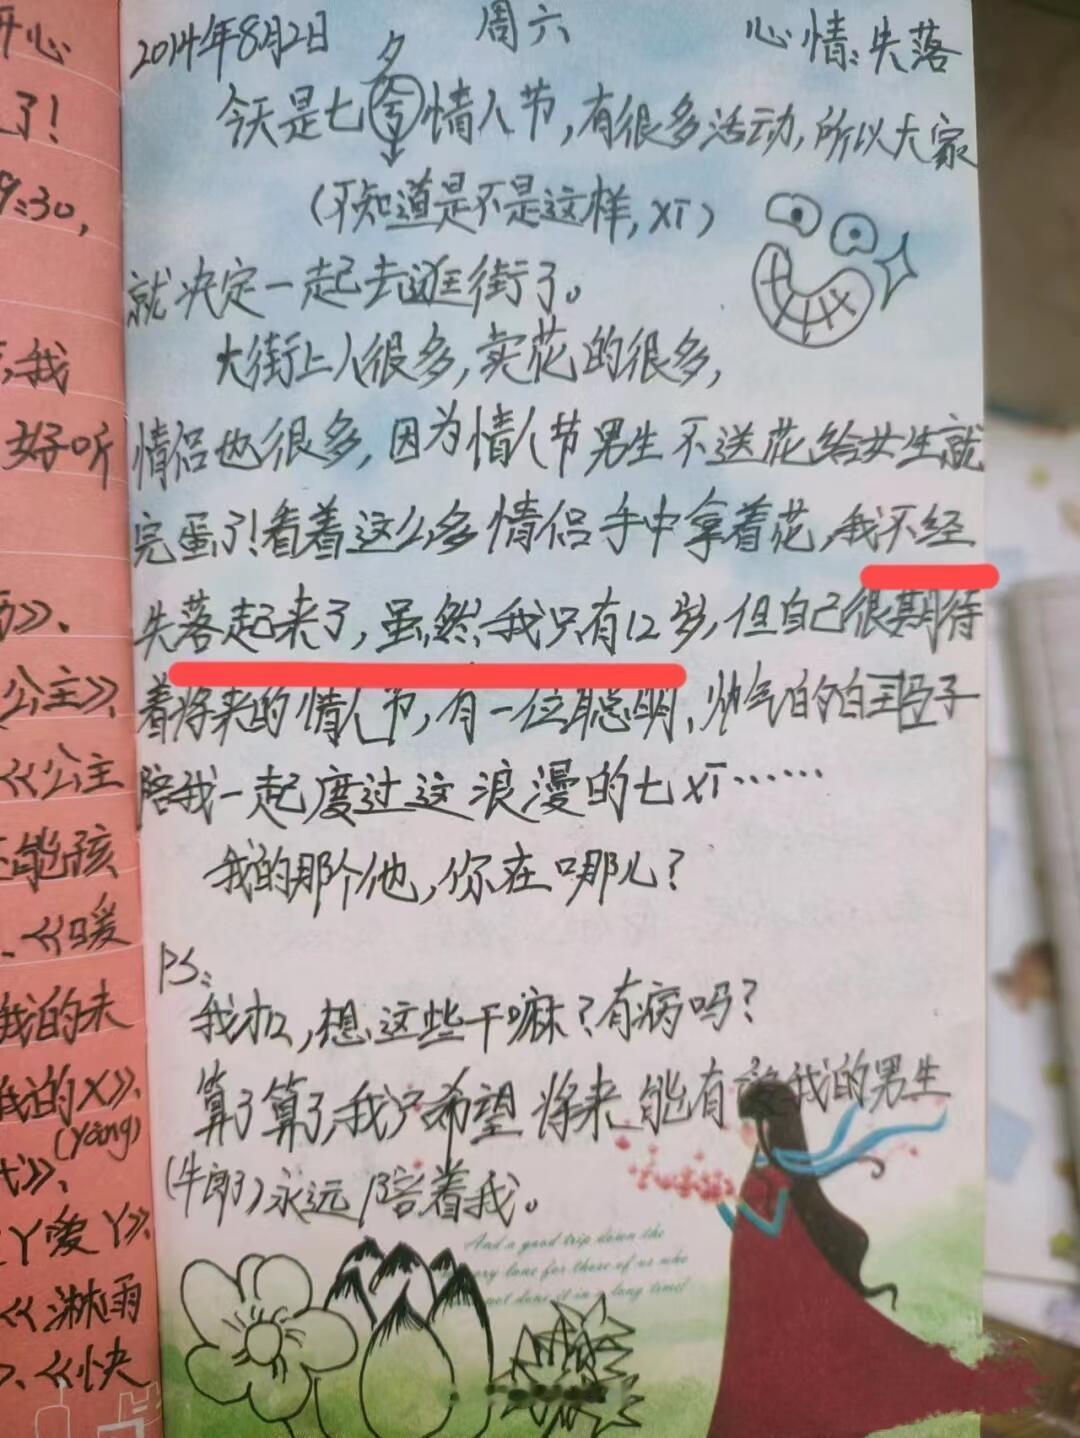 2014年8月2日 周六 心情:失落
夕
今天是七令情人节,有很多活动,所以大家
(不知道是不是这样,XT)
就决定一起去逛街了。
大街上人很多,卖花的很多,
情侣也很多,因为情人节男生不送花给女生就
完蛋了!看着这么多情侣手中拿着花,我不经
失落起来了,虽然我只有12岁,但自己很期待
着将来的情人节,有一位聪明、帅气的白马王子
陪我一起度过这浪漫的七XT……
我的那个他,你在哪儿?
PS:
我扛,想这些干嘛?有病吗?
算了算了,我只希望将来能有我的男生
(牛郎)永远陪着我。
And a good trip down the
lane for those of us who
not done it in a long time!
开心
了!
9:30,
,我
好听
》、
公主》、
《公主
能孩
、《暖
我的未
我的X》、
(yàng)
》、
丫爱丫》、
《淋雨
、《快